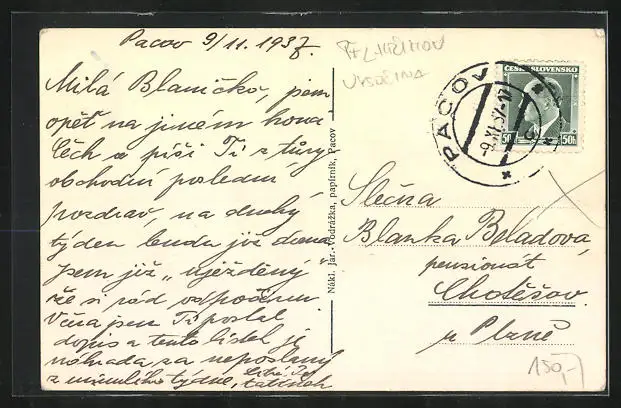 Pacov 9/11. 1937.
Milá Blaničko, jsem
opět na jiném kona
těch a píši Ti z túry
obchodní poslední
pozdrav, na druhý
týden budu již doma
jsem již „ uježděný "
že si rád odpočinu.
Včera jsem Ti poslal
dopis a tento lístek je
náhrada za neposlaný
z minulého týdne,
PELHŘIMOV
VYSOČINA
PACOV
9.XI.37-17
ČESKOSLOVENSKO
50h 50h
Nákl. Jar. Vodrážka, papírník, Pacov
Slečna
Blanka Beladová,
pensionát
Chotěšov
u Plzně
150,-